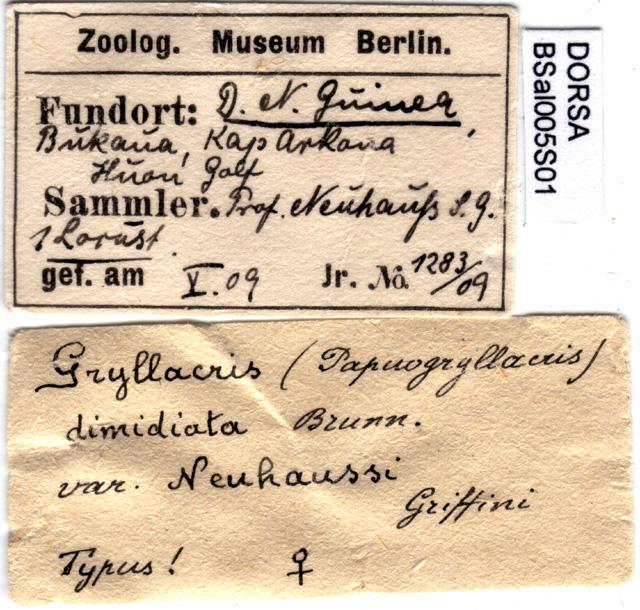 Zoolog. Museum Berlin.
Fundort: D. N. Guinea,
Bukaua, Kap Arkona
Huon Golf
Sammler. Prof. Neuhauſs S. G.
1 Locust.
gef. am V. 09 Jr. No. 1283/09
DORSA
BSal005S01
Gryllacris (Papuogryllacris)
dimidiata Brunn.
var. Neuhaussi
Griffini
Typus! ♀